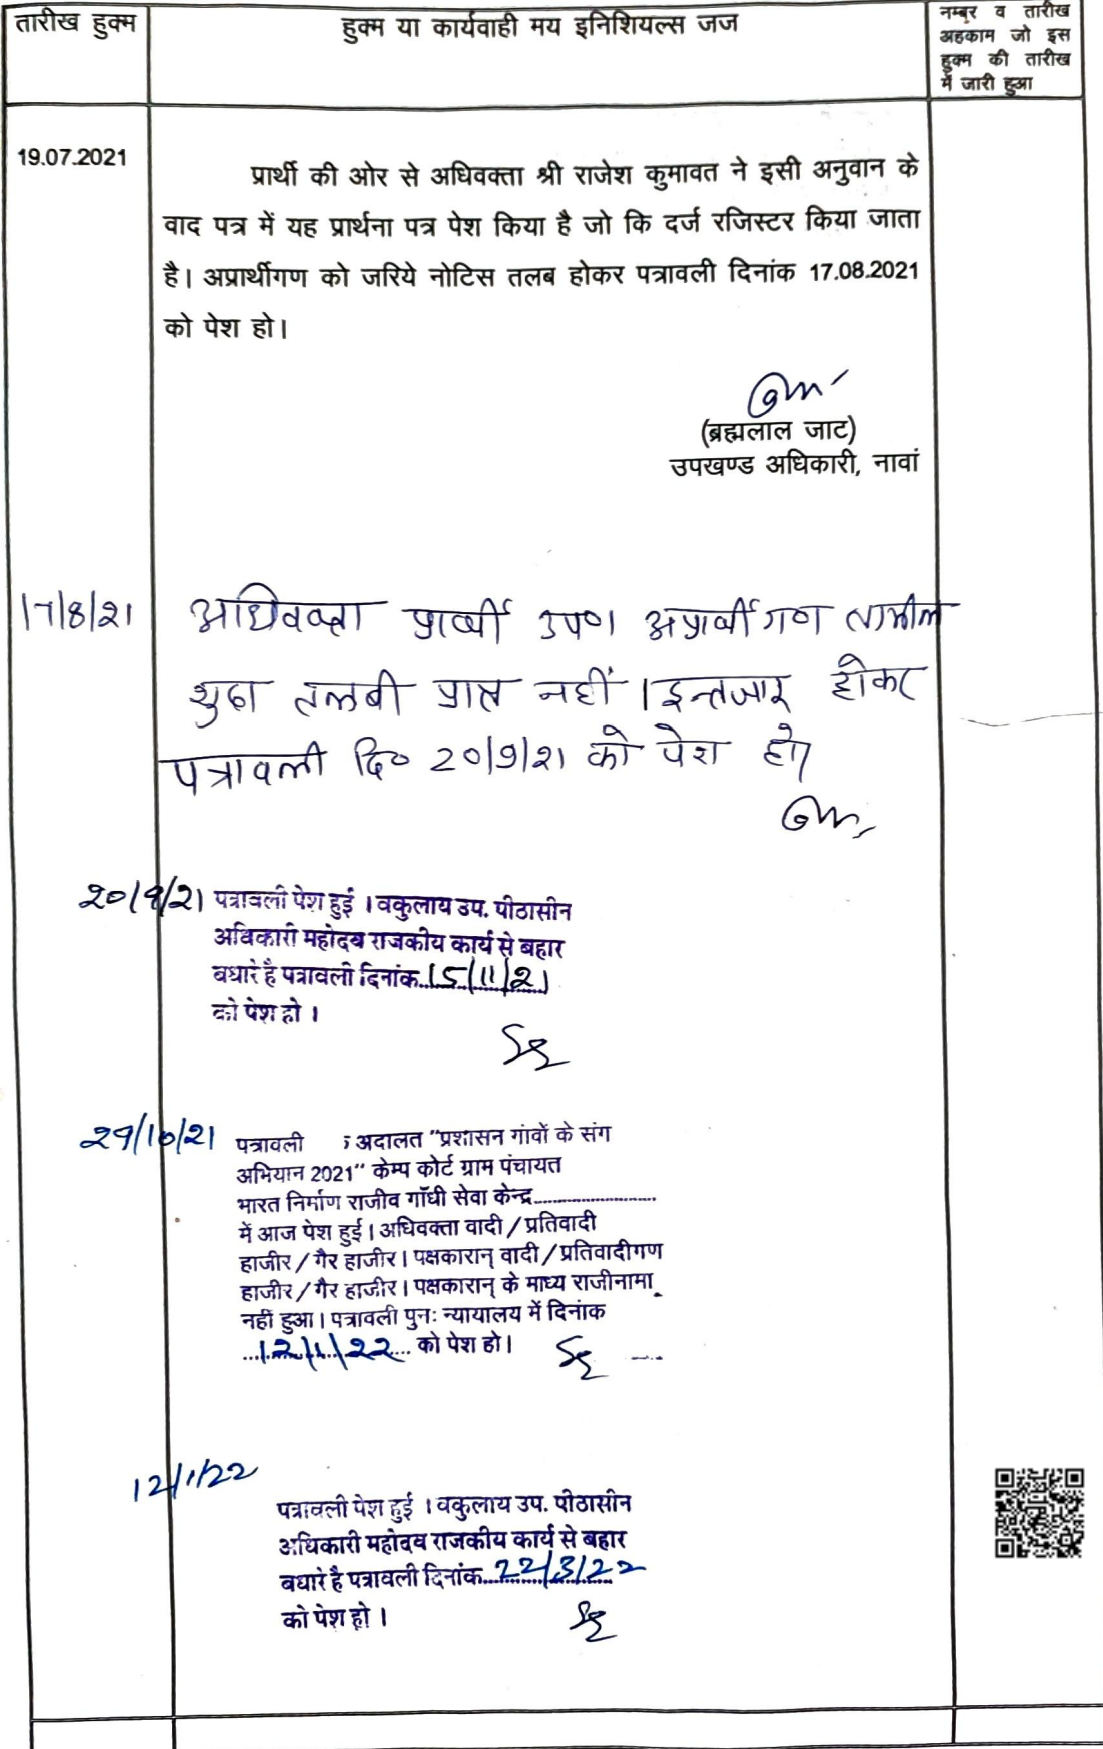 तारीख हुक्म
हुक्म या कार्यवाही मय इनिशियल्स जज
नम्बर व तारीख
अहकाम जो इस
हुक्म की तारीख
में जारी हुआ
19.07.2021
प्रार्थी की ओर से अधिवक्ता श्री राजेश कुमावत ने इसी अनुवान के
वाद पत्र में यह प्रार्थना पत्र पेश किया है जो कि दर्ज रजिस्टर किया जाता
है। अप्रार्थीगण को जरिये नोटिस तलब होकर पत्रावली दिनांक 17.08.2021
को पेश हो।
(ब्रह्मलाल जाट)
उपखण्ड अधिकारी, नावां
17/8/21 अधिवक्ता प्रार्थी उप० अप्रार्थीगण तामील
शुदा तलबी प्राप्त नहीं । इन्तजार होकर
पत्रावली दि० 20/9/21 को पेश हो
20/9/21 पत्रावली पेश हुई । वकुलाय उप. पीठासीन
अधिकारी महोदय राजकीय कार्य से बहार
बधारे है पत्रावली दिनांक 15/11/21
को पेश हो ।
29/10/21 पत्रावली अदालत "प्रशासन गांवों के संग
अभियान 2021" केम्प कोर्ट ग्राम पंचायत
भारत निर्माण राजीव गॉंधी सेवा केन्द्र..............
में आज पेश हुई। अधिवक्ता वादी / प्रतिवादी
हाजीर / गैर हाजीर। पक्षकारान् वादी / प्रतिवादीगण
हाजीर / गैर हाजीर। पक्षकारान् के माध्य राजीनामा
नहीं हुआ। पत्रावली पुनः न्यायालय में दिनांक
12/1/22 को पेश हो।
12/1/22
पत्रावली पेश हुई । वकुलाय उप. पीठासीन
अधिकारी महोदय राजकीय कार्य से बहार
बधारे है पत्रावली दिनांक 22/3/22
को पेश हो ।